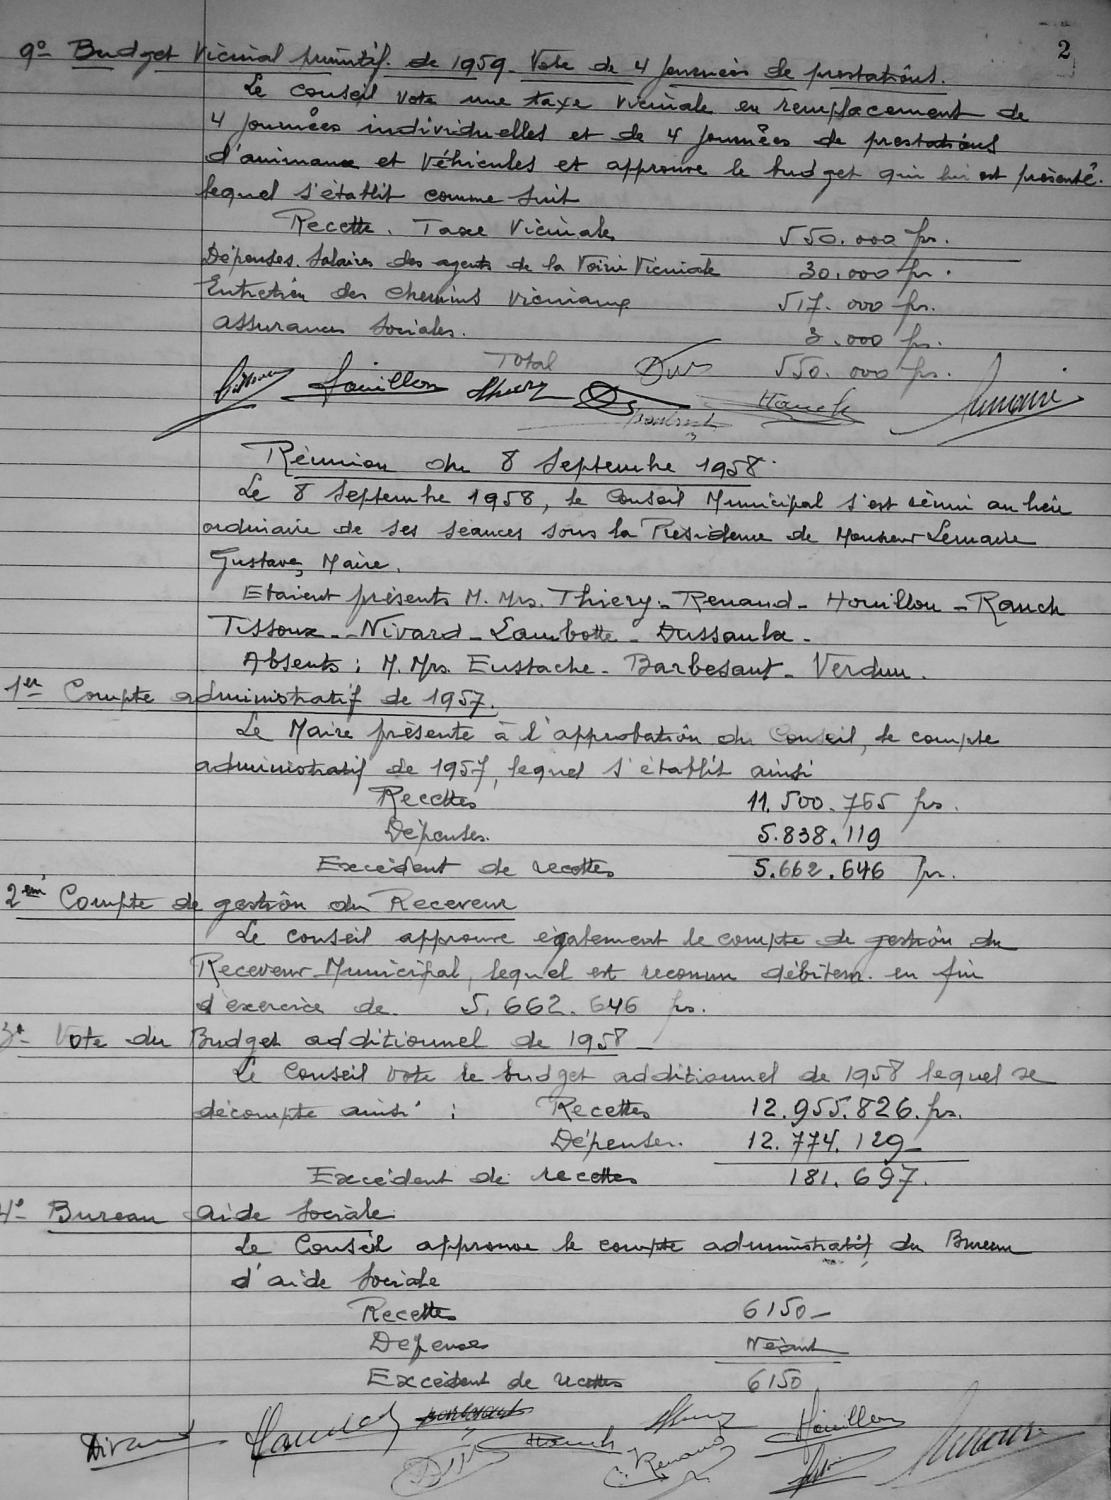 2
9º Budget Vicinal primitif. de 1959. Vote de 4 journées de prestations.
Le conseil vote une taxe vicinale en remplacement de
4 journées individuelles et de 4 journées de prestations
d'animaux et véhicules et approuve le budget qui lui est présenté.
lequel s'établit comme suit
Recette. Taxe Vicinale 550.000 frs.
Dépenses. Salaires des agents de la Voirie Vicinale 30.000 frs.
Entretien des chemins vicinaux 517.000 frs.
assurances sociales. 3.000 frs.
Total 550.000 frs.
Houillon Thiery Rauch Lemaire
Réunion du 8 Septembre 1958.
Le 8 Septembre 1958, le Conseil Municipal s'est réuni au lieu
ordinaire de ses séances sous la Présidence de Monsieur Lemaire
Gustave, Maire.
Etaient présents M. Mrs. Thiery - Renaud - Houillon - Rauch
Tissoux - Nivard - Lambotte - Dussaulx.
Absents : M. Mrs. Eustache - Barbesant - Verdun.
1er Compte administratif de 1957.
Le Maire présente à l'approbation du Conseil, le compte
administratif de 1957, lequel s'établit ainsi
Recettes 11.500.765 frs.
Dépenses. 5.838.119
Excédent de recettes 5.662.646 frs.
2em Compte de gestion du Receveur
Le conseil approuve également le compte de gestion du
Receveur Municipal, lequel est reconnu débiteur en fin
d'exercice de. 5.662.646 frs.
3º Vote du Budget additionnel de 1958
Le Conseil vote le budget additionnel de 1958 lequel se
décompte ainsi : Recettes 12.955.826. frs.
Dépenses. 12.774.129
Excédent de recettes 181.697.
4º Bureau aide Sociale.
Le Conseil approuve le compte administratif du Bureau
d'aide Sociale
Recettes 6150
Dépenses Néant
Excédent de recettes 6150
Nivard Barbesant Rauch Thiery Renaud Houillon Lemaire